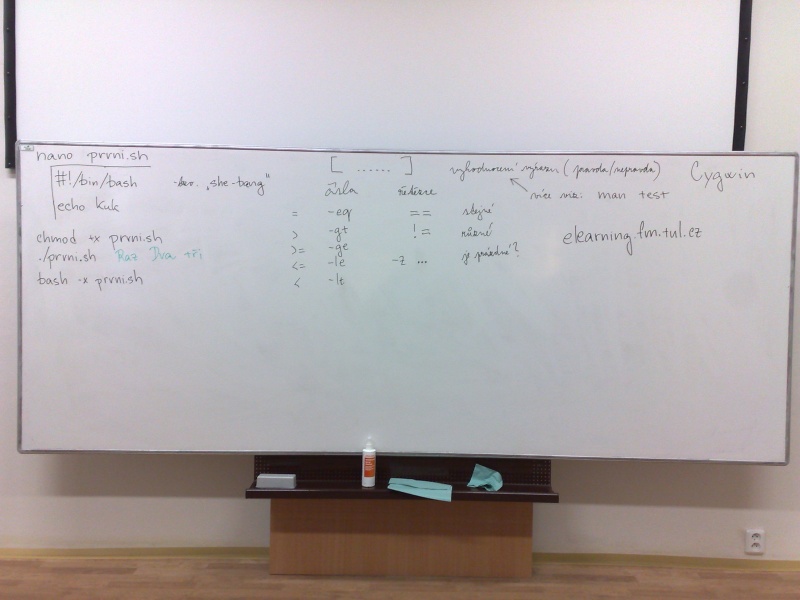 nano prvni.sh
#!/bin/bash
echo Kuk
- tzv. „she-bang"
chmod +x prvni.sh
./prvni.sh Raz Dva tři
bash -x prvni.sh
[ ...... ] vyhodnocení výrazu (pravda/nepravda)
více viz: man test
čísla řetězce
= -eq == stejné
> -gt != různé
>= -ge
<= -le -z ... je prázdné?
< -lt
Cygwin
elearning.fm.tul.cz